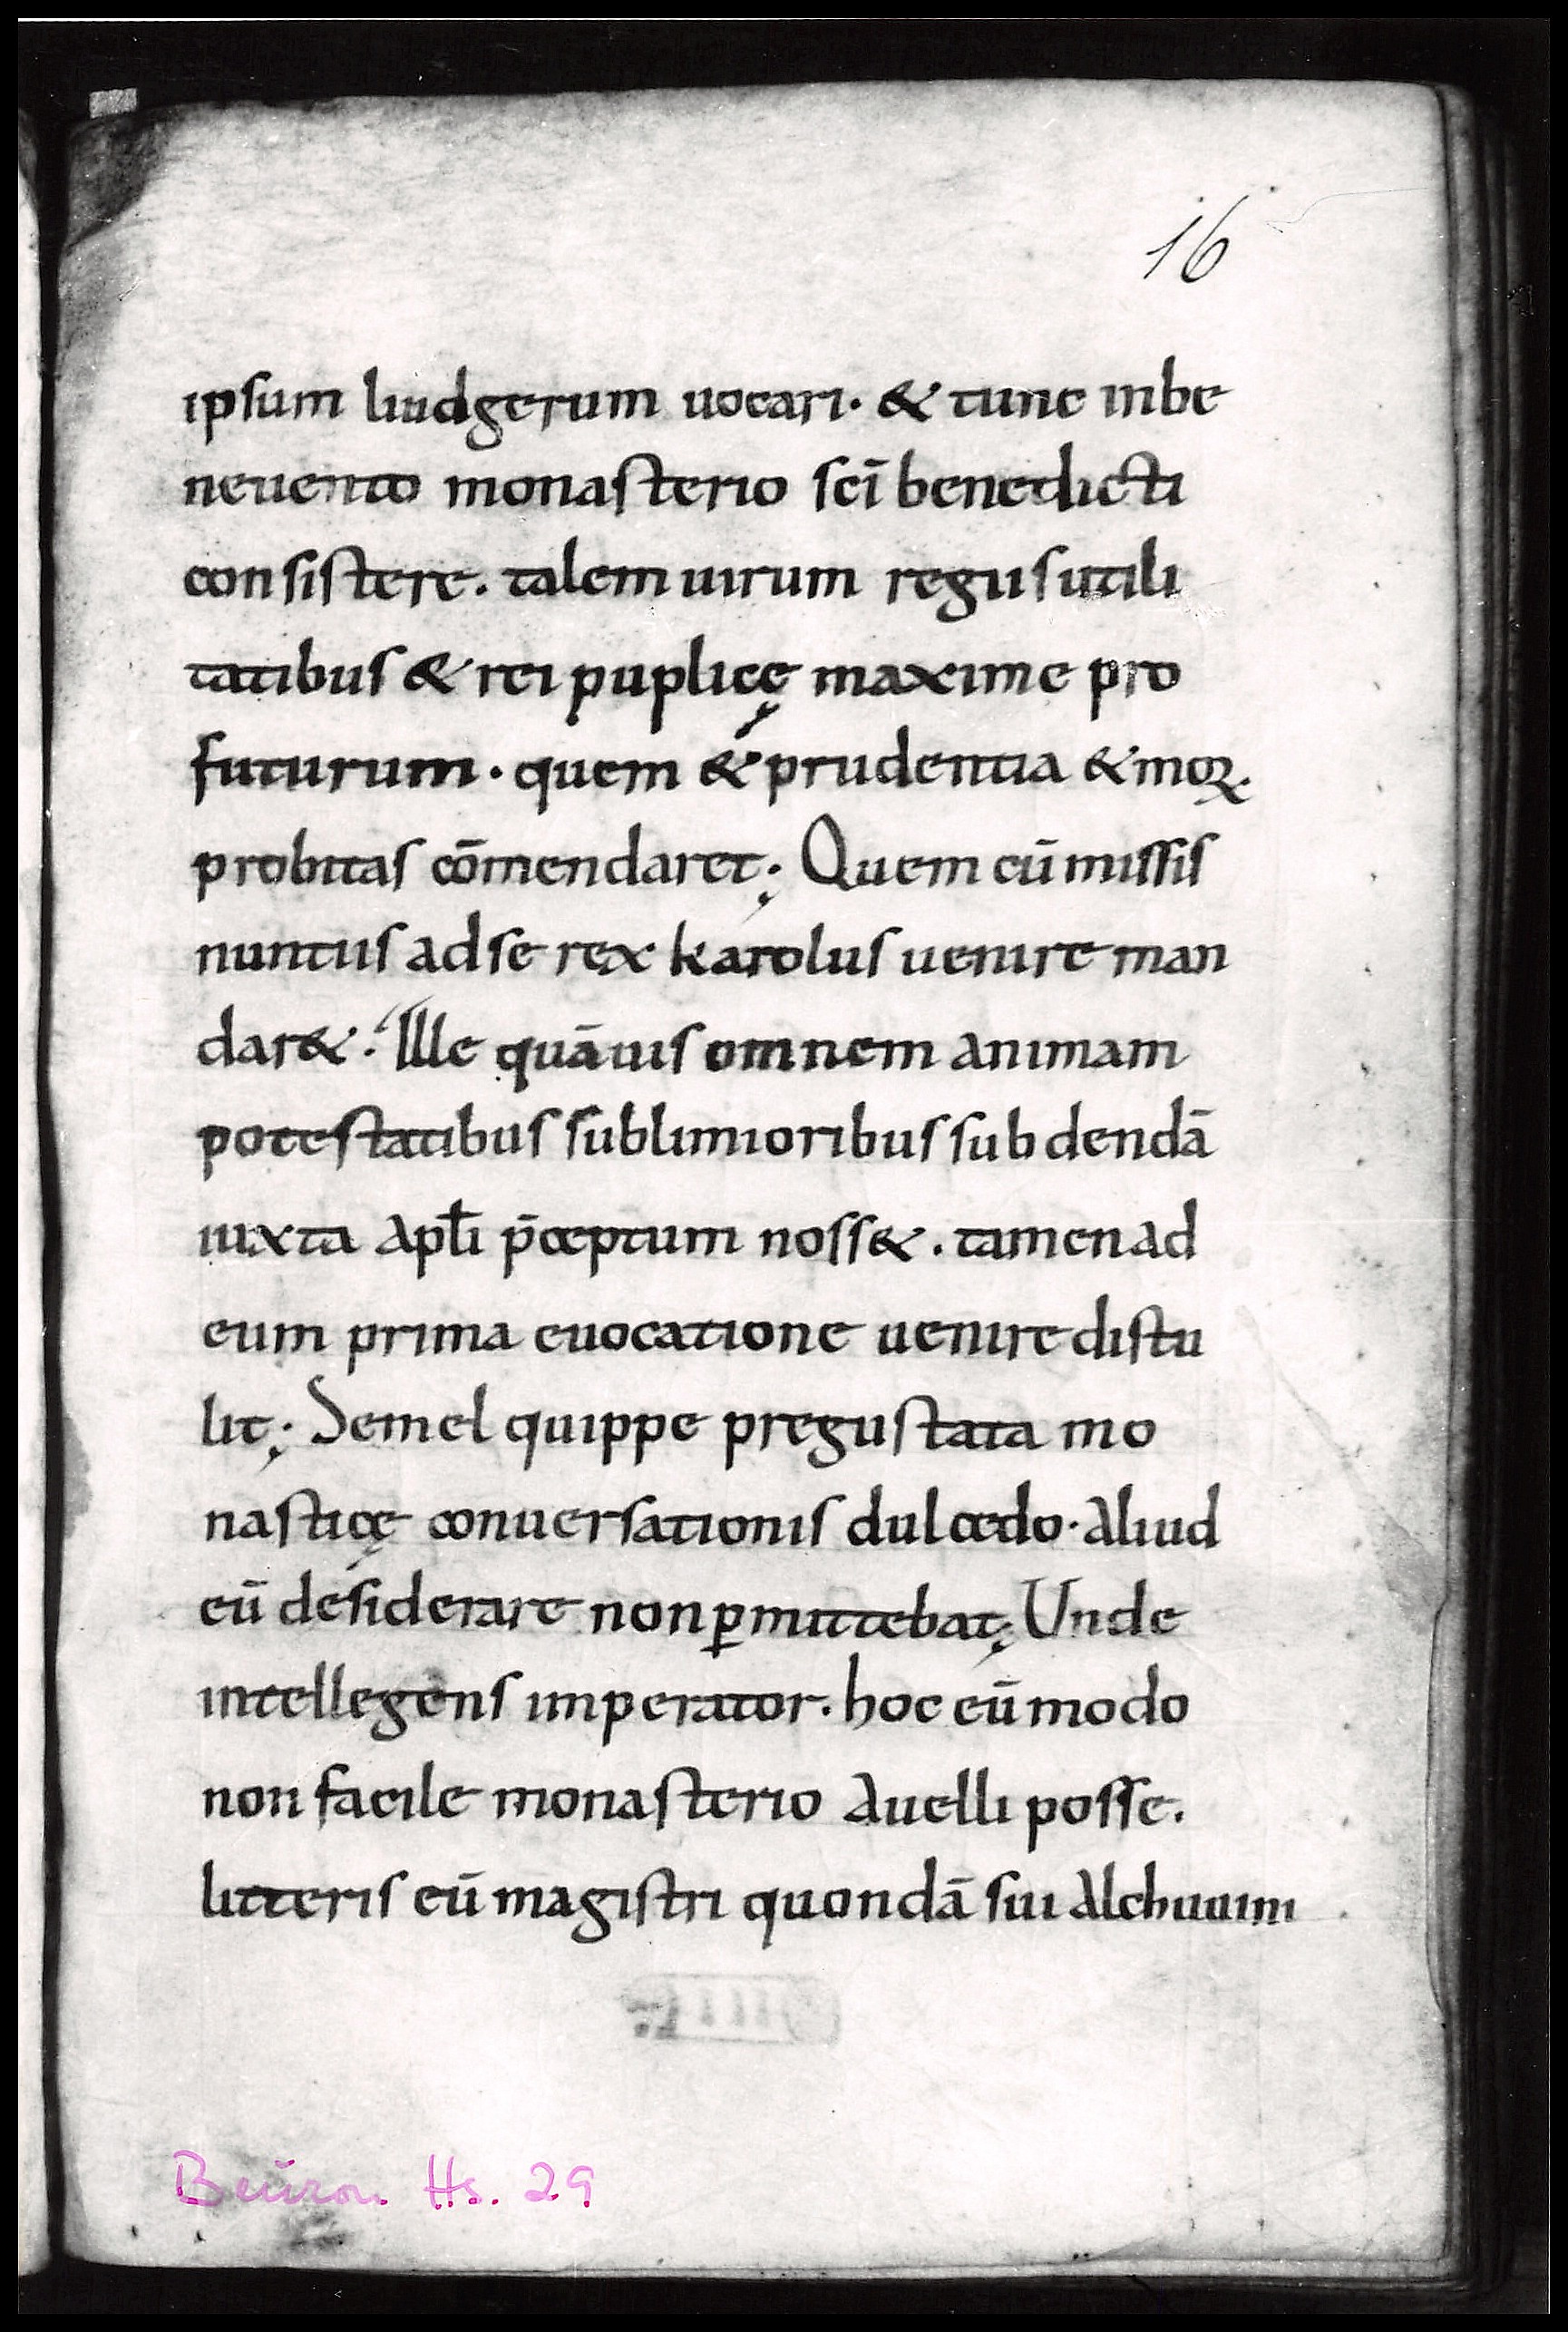 16
ipsum liudgerum uocari. & tunc inbe
neuento monasterio sci̅ benedicti
consistere. talem uirum regiis utili
tatibus & rei puplicę maxime pro
futurum. quem & prudentia & moꝝ.
probitas co̅mendaret; Quem cu̅ missis
nuntiis ad se rex karolus uenire man
dar&. Ille qua̅uis omnem animam
potestatibus sublimioribus subdenda̅
iuxta apłi p̅ceptum noss&. tamen ad
eum prima euocatione uenire distu
lit; Semel quippe pregustata mo
nasticę conuersationis dulcedo. aliud
eu̅ desiderare non ꝑmittebat; Unde
intellegens imperator. hoc eu̅ modo
non facile monasterio auelli posse.
litteris eu̅ magistri quonda̅ sui alchuuini
Beuron Hs. 29